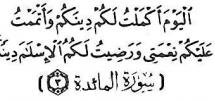 الْيَوْمَ أَكْمَلْتُ لَكُمْ دِينَكُمْ وَأَتْمَمْتُ
عَلَيْكُمْ نِعْمَتِي وَرَضِيتُ لَكُمُ الْإِسْلَمَ
( سُورَة المائدة )